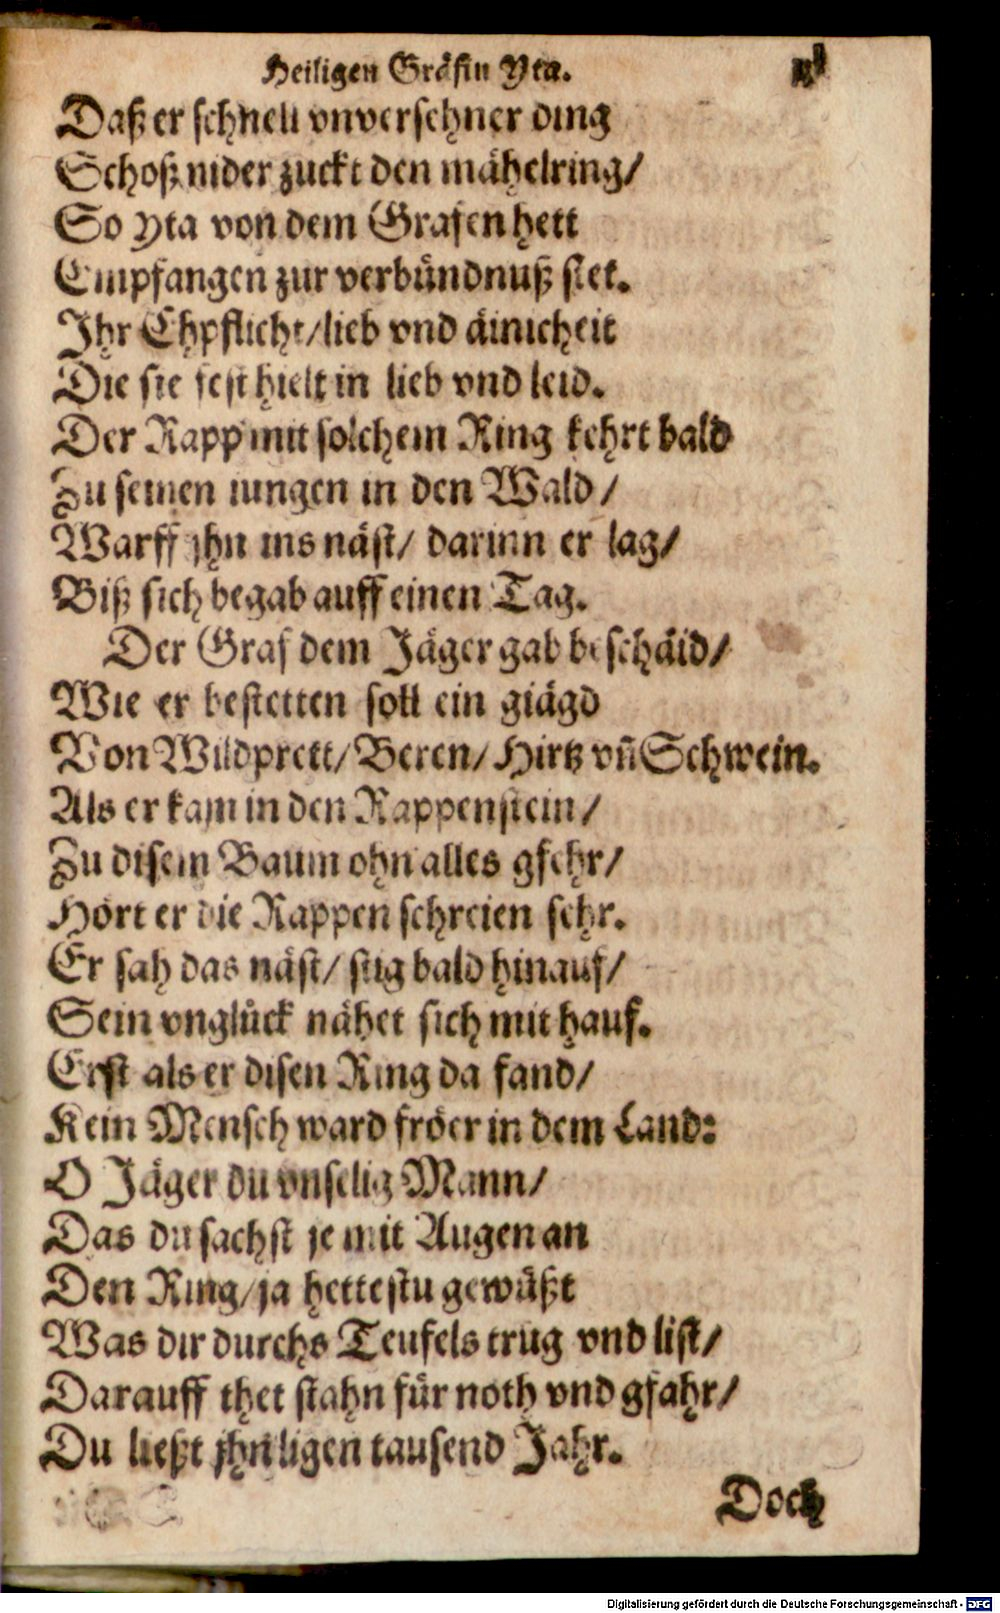 Heiligen Gräfin Yta.
Daß er schnell vnversehner ding
Schoß nider zuckt den mähelring/
So yta von dem Grafen hett
Empfangen zur verbündnuß stet.
Ihr Ehpflicht/ lieb vnd äinicheit
Die sie fest hielt in lieb vnd leid.
Der Rapp mit solchem Ring kehrt bald
Zu seinen iungen in den Wald/
Warff jhn ins näst/ darinn er lag/
Biß sich begab auff einen Tag.
Der Graf dem Jäger gab beschäid/
Wie er bestetten soll ein giägd
Von Wildprett/ Beren/ Hirtz vñ Schwein.
Als er kam in den Rappenstein/
Zu disem Baum ohn alles gfehr/
Hört er die Rappen schreien sehr.
Er sah das näst/ stig bald hinauf/
Sein vnglück nähet sich mit hauf.
Erst als er disen Ring da fand/
Kein Mensch ward fröer in dem Land:
O Jäger du vnselig Mann/
Das du sachst je mit Augen an
Den Ring/ ja hettestu gewüßt
Was dir durchs Teufels trug vnd list/
Darauff thet stahn für noth vnd gfahr/
Du ließt jhn ligen tausend Jahr.
Doch
Digitalisierung gefördert durch die Deutsche Forschungsgemeinschaft - DFG